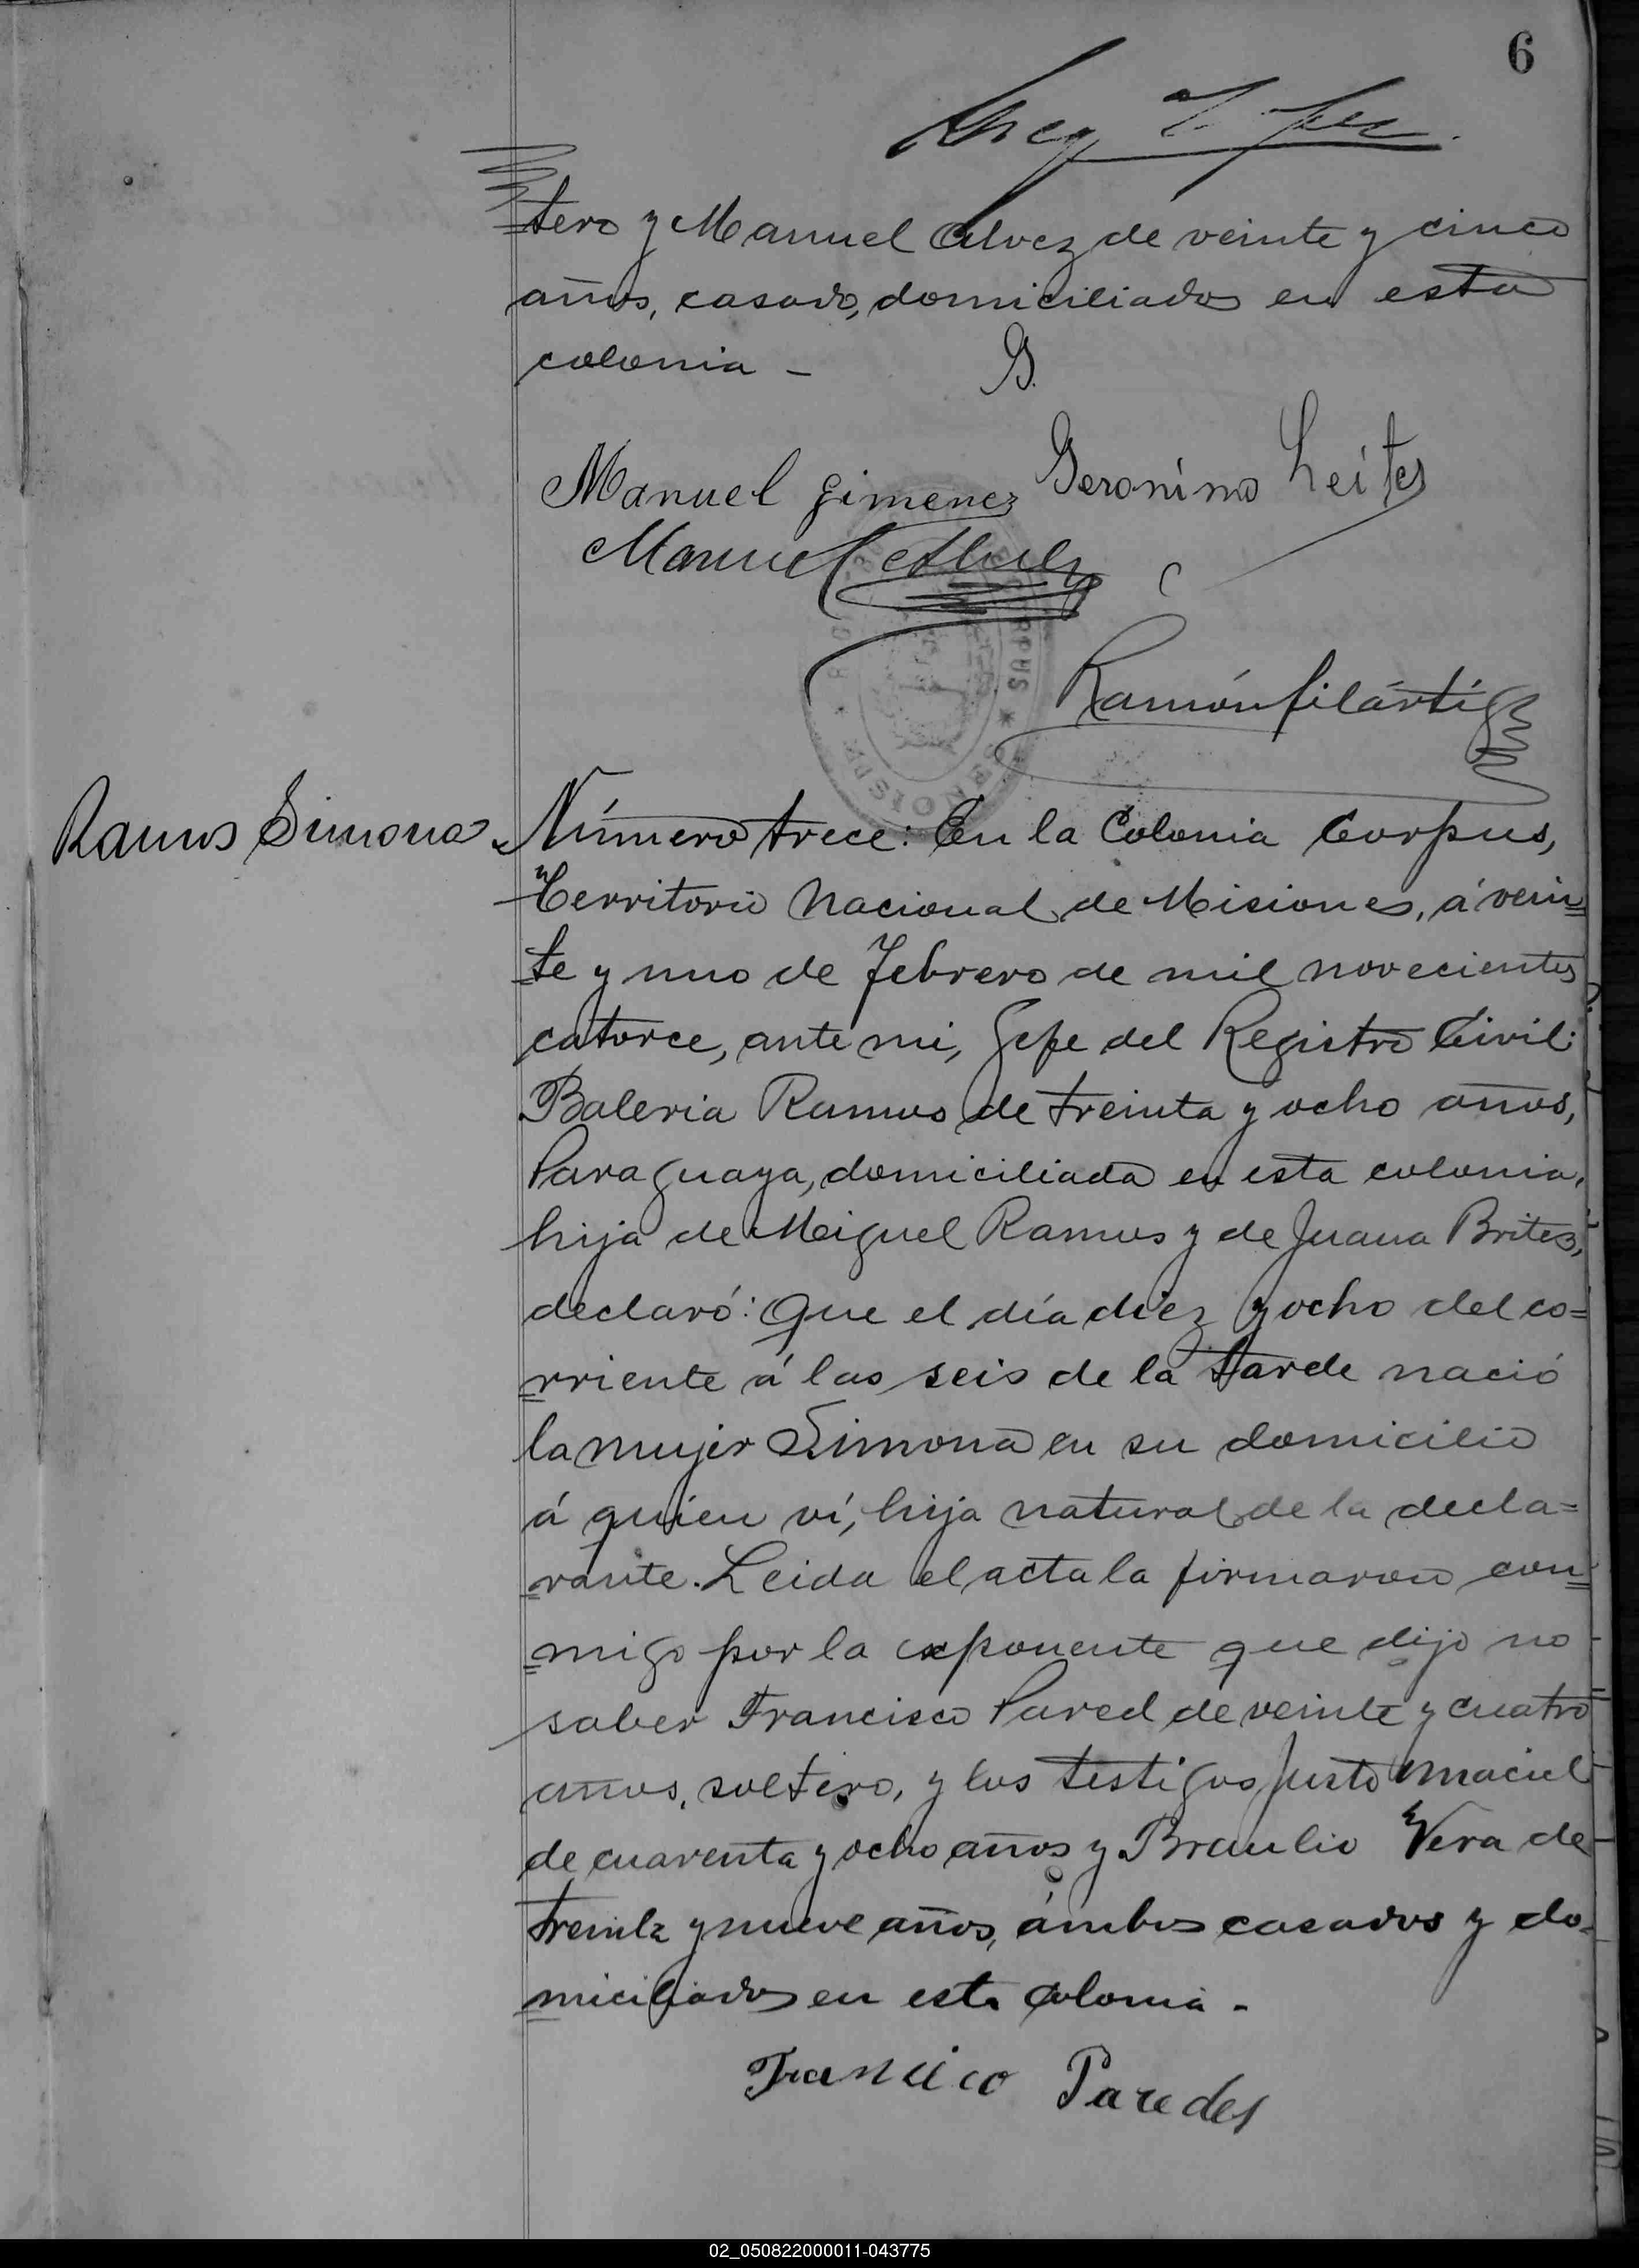 6
tero y Manuel Alvez de veinte y cinco
años, casado, domiciliados en esta
colonia -
G.
Manuel Gimenez Geronimo Leites
Manuel
Ramón Filártiga
CORPUS
Ramos Simona
Número trece: En la Colonia Corpus,
Territorio Nacional de Misiones, á vein=
te y uno de Febrero de mil novecientos
catorce, ante mi, Gefe del Registro Civil:
Baleria Ramos de treinta y ocho años,
Paraguaya, domiciliada en esta colonia,
hija de Miguel Ramos y de Juana Britez,
declaró: Que el día diez y ocho del co=
rriente á las seis de la tarde nació
la mujer Simona en su domicilio
á quien ví, hija natural de la decla=
rante. Leida el acta la firmaron con=
migo por la exponente que dijo no
saber Francisco Pared de veinte y cuatro
años, soltero, y los testigos Justo Maciel
de cuarenta y ocho años y Braulio Vera de
treinta y nueve años, ámbos casados y do=
miciliados en esta colonia -
Francico Paredes
02_050822000011-043775